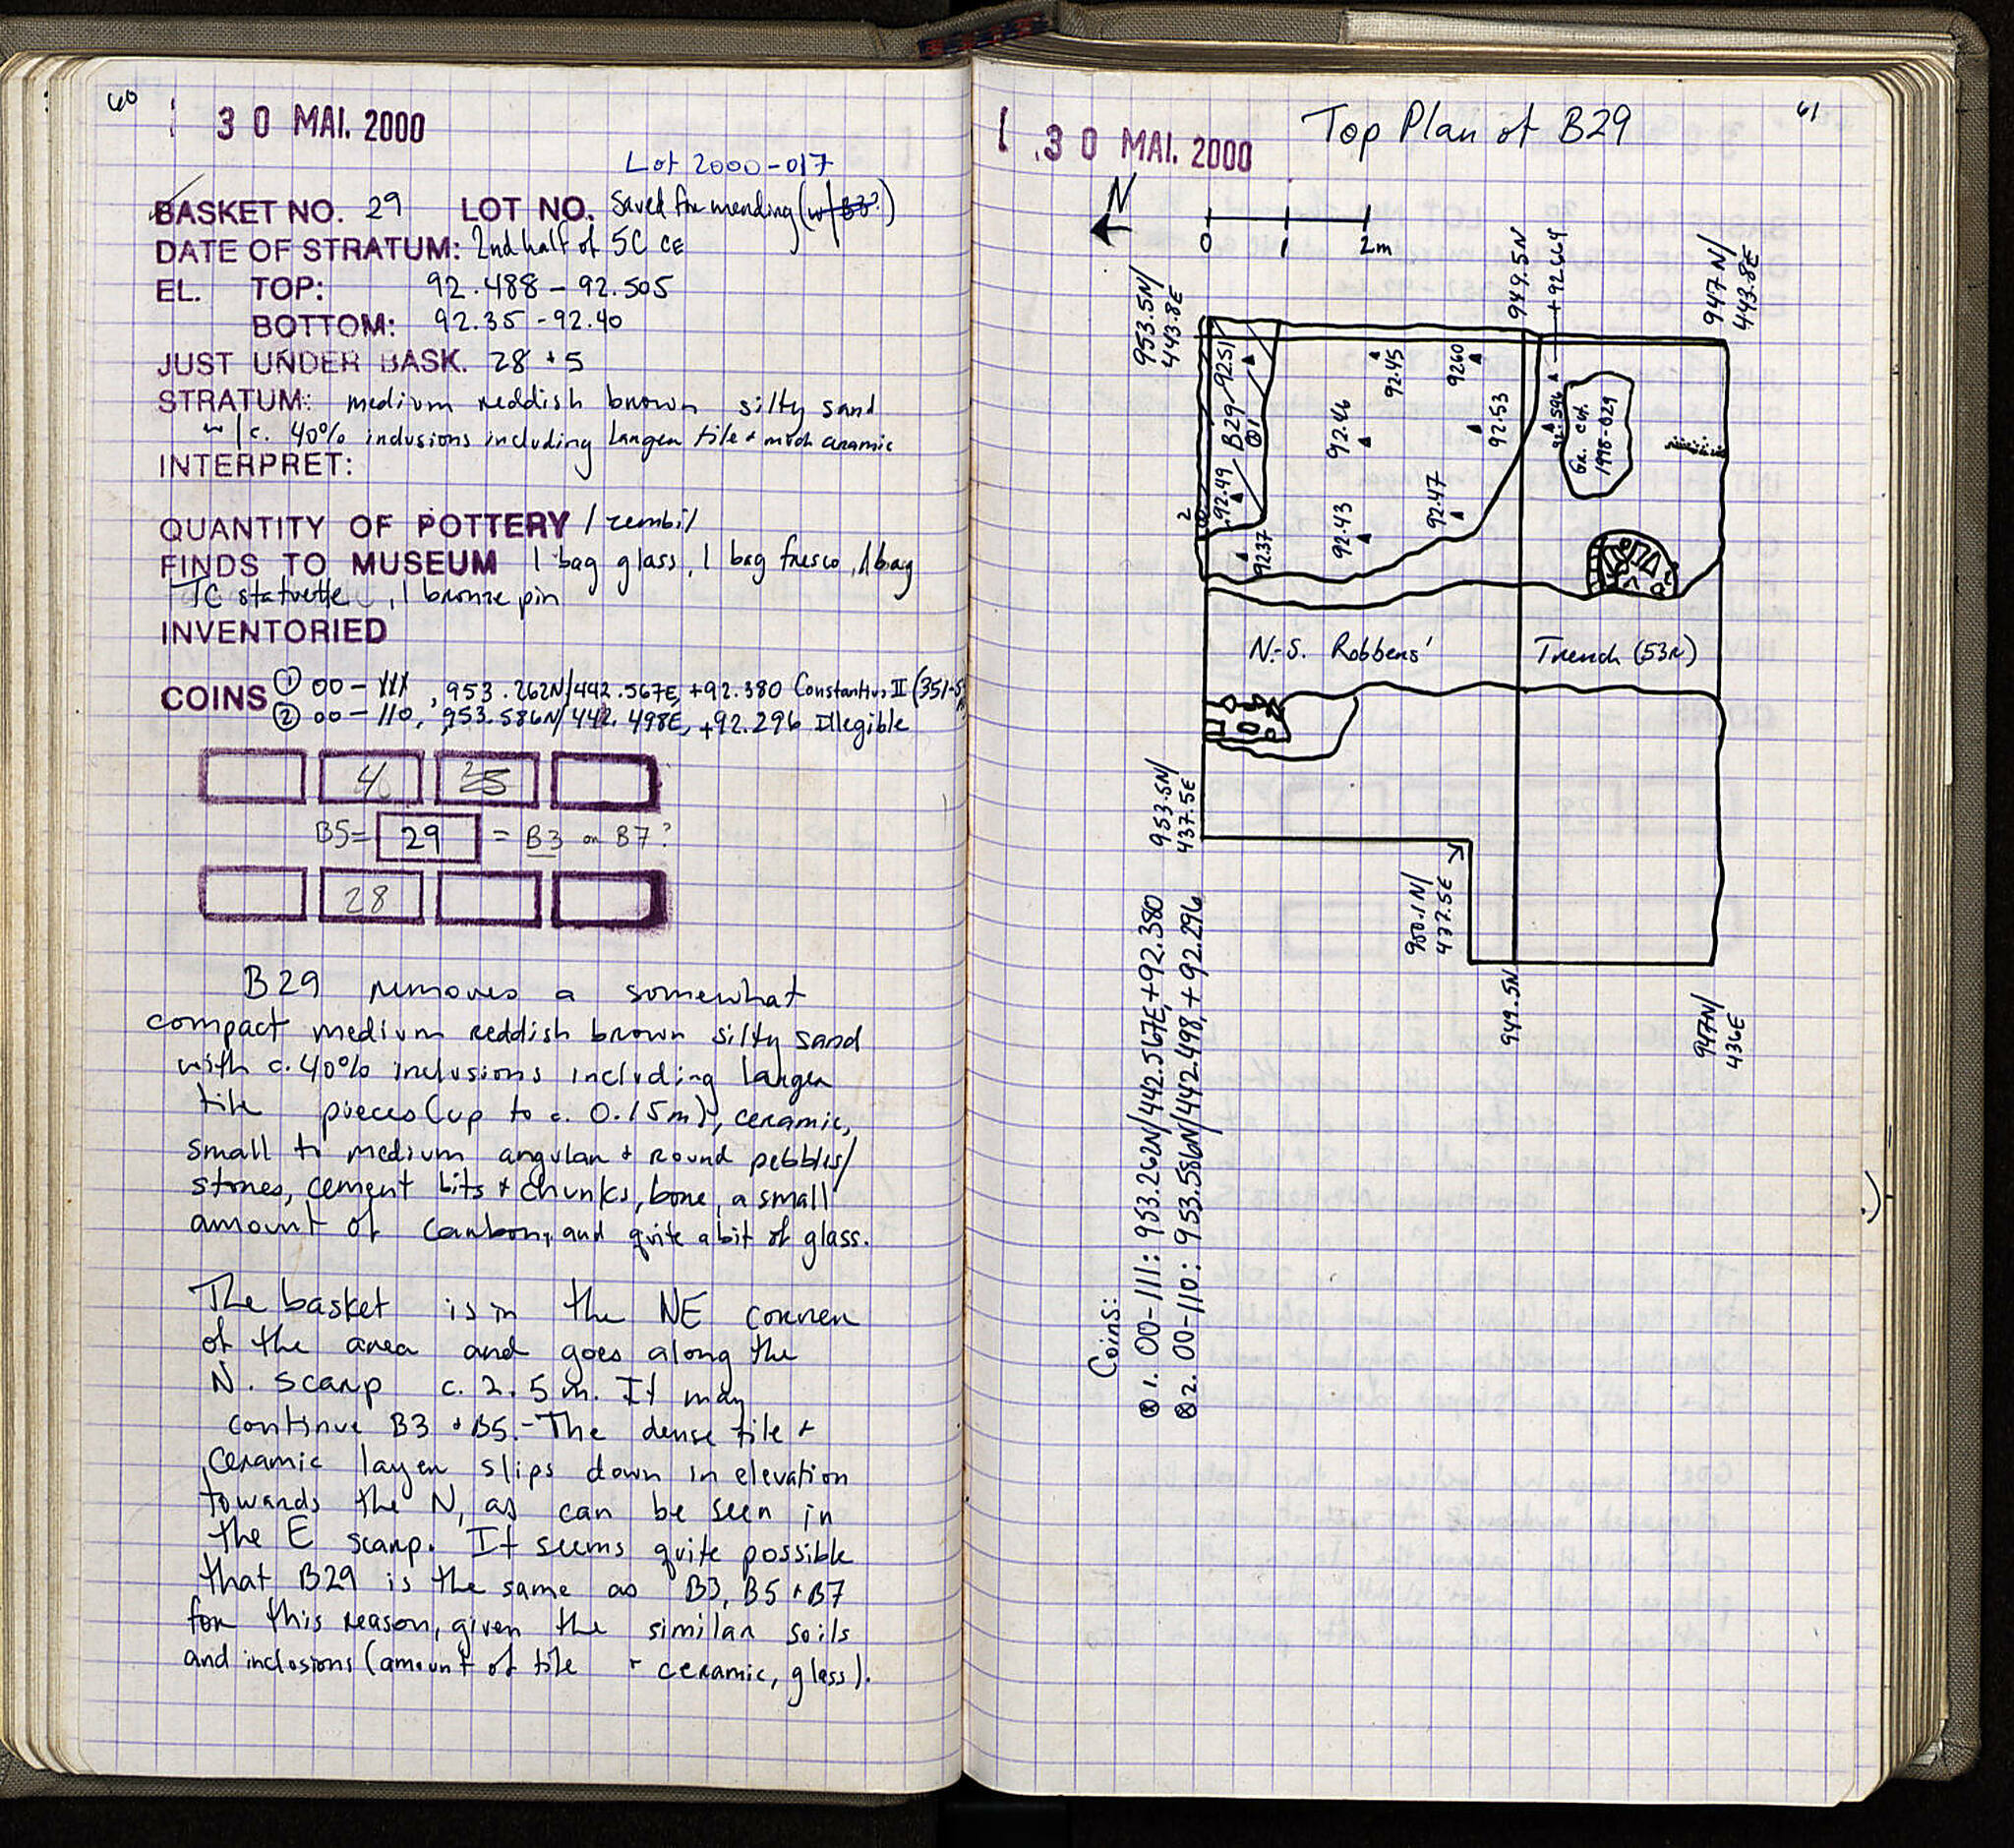 60
30 MAI. 2000
Lot 2000-017
BASKET NO. 29 LOT NO. Saved for mending (w/ B3?)
DATE OF STRATUM: 2nd half of 5C CE
EL. TOP: 92.488 - 92.505
BOTTOM: 92.35 - 92.40
JUST UNDER BASK. 28 + 5
STRATUM: medium reddish brown silty sand
w/c. 40% inclusions including larger tile + much ceramic
INTERPRET:
QUANTITY OF POTTERY 1 zembil
FINDS TO MUSEUM 1 bag glass, 1 bag fresco, 1 bag
TC statuette, 1 bronze pin
INVENTORIED
COINS ① 00-111, 953.262N/442.567E, +92.380 Constantius II (351-
② 00-110, 953.586N/442.498E, +92.296 Illegible
B5= 29 = B3 or B7?
28
B29 removes a somewhat
compact medium reddish brown silty sand
with c. 40% inclusions including larger
tile pieces (up to c. 0.15m), ceramic,
small to medium angular + round pebbles/
stones, cement bits + chunks, bone, a small
amount of carbon, and quite a bit of glass.
The basket is in the NE corner
of the area and goes along the
N. scarp c. 2.5 m. It may
continue B3 + B5.- The dense tile +
ceramic layer slips down in elevation
towards the N, as can be seen in
the E scarp. It seems quite possible
that B29 is the same as B3, B5 + B7
for this reason, given the similar soils
and inclusions (amount of tile + ceramic, glass).
61
30 MAI. 2000
Top Plan of B29
N
0 1 2m
953.5N/
443.8E
949.5N
+92.664
947N/
443.8E
92.51
B29
1
92.49
2
92.37
92.45
92.46
92.43
92.60
92.53
92.47
92.596
Gr. cut.
1998-029
N.-S. Robbers' Trench (53R)
953.5N/
437.5E
950.1N/
437.5E
949.5N
947N/
436E
Coins:
⊗ 1. 00-111: 953.262N/442.567E, +92.380
⊗ 2. 00-110: 953.586N/442.498, +92.296